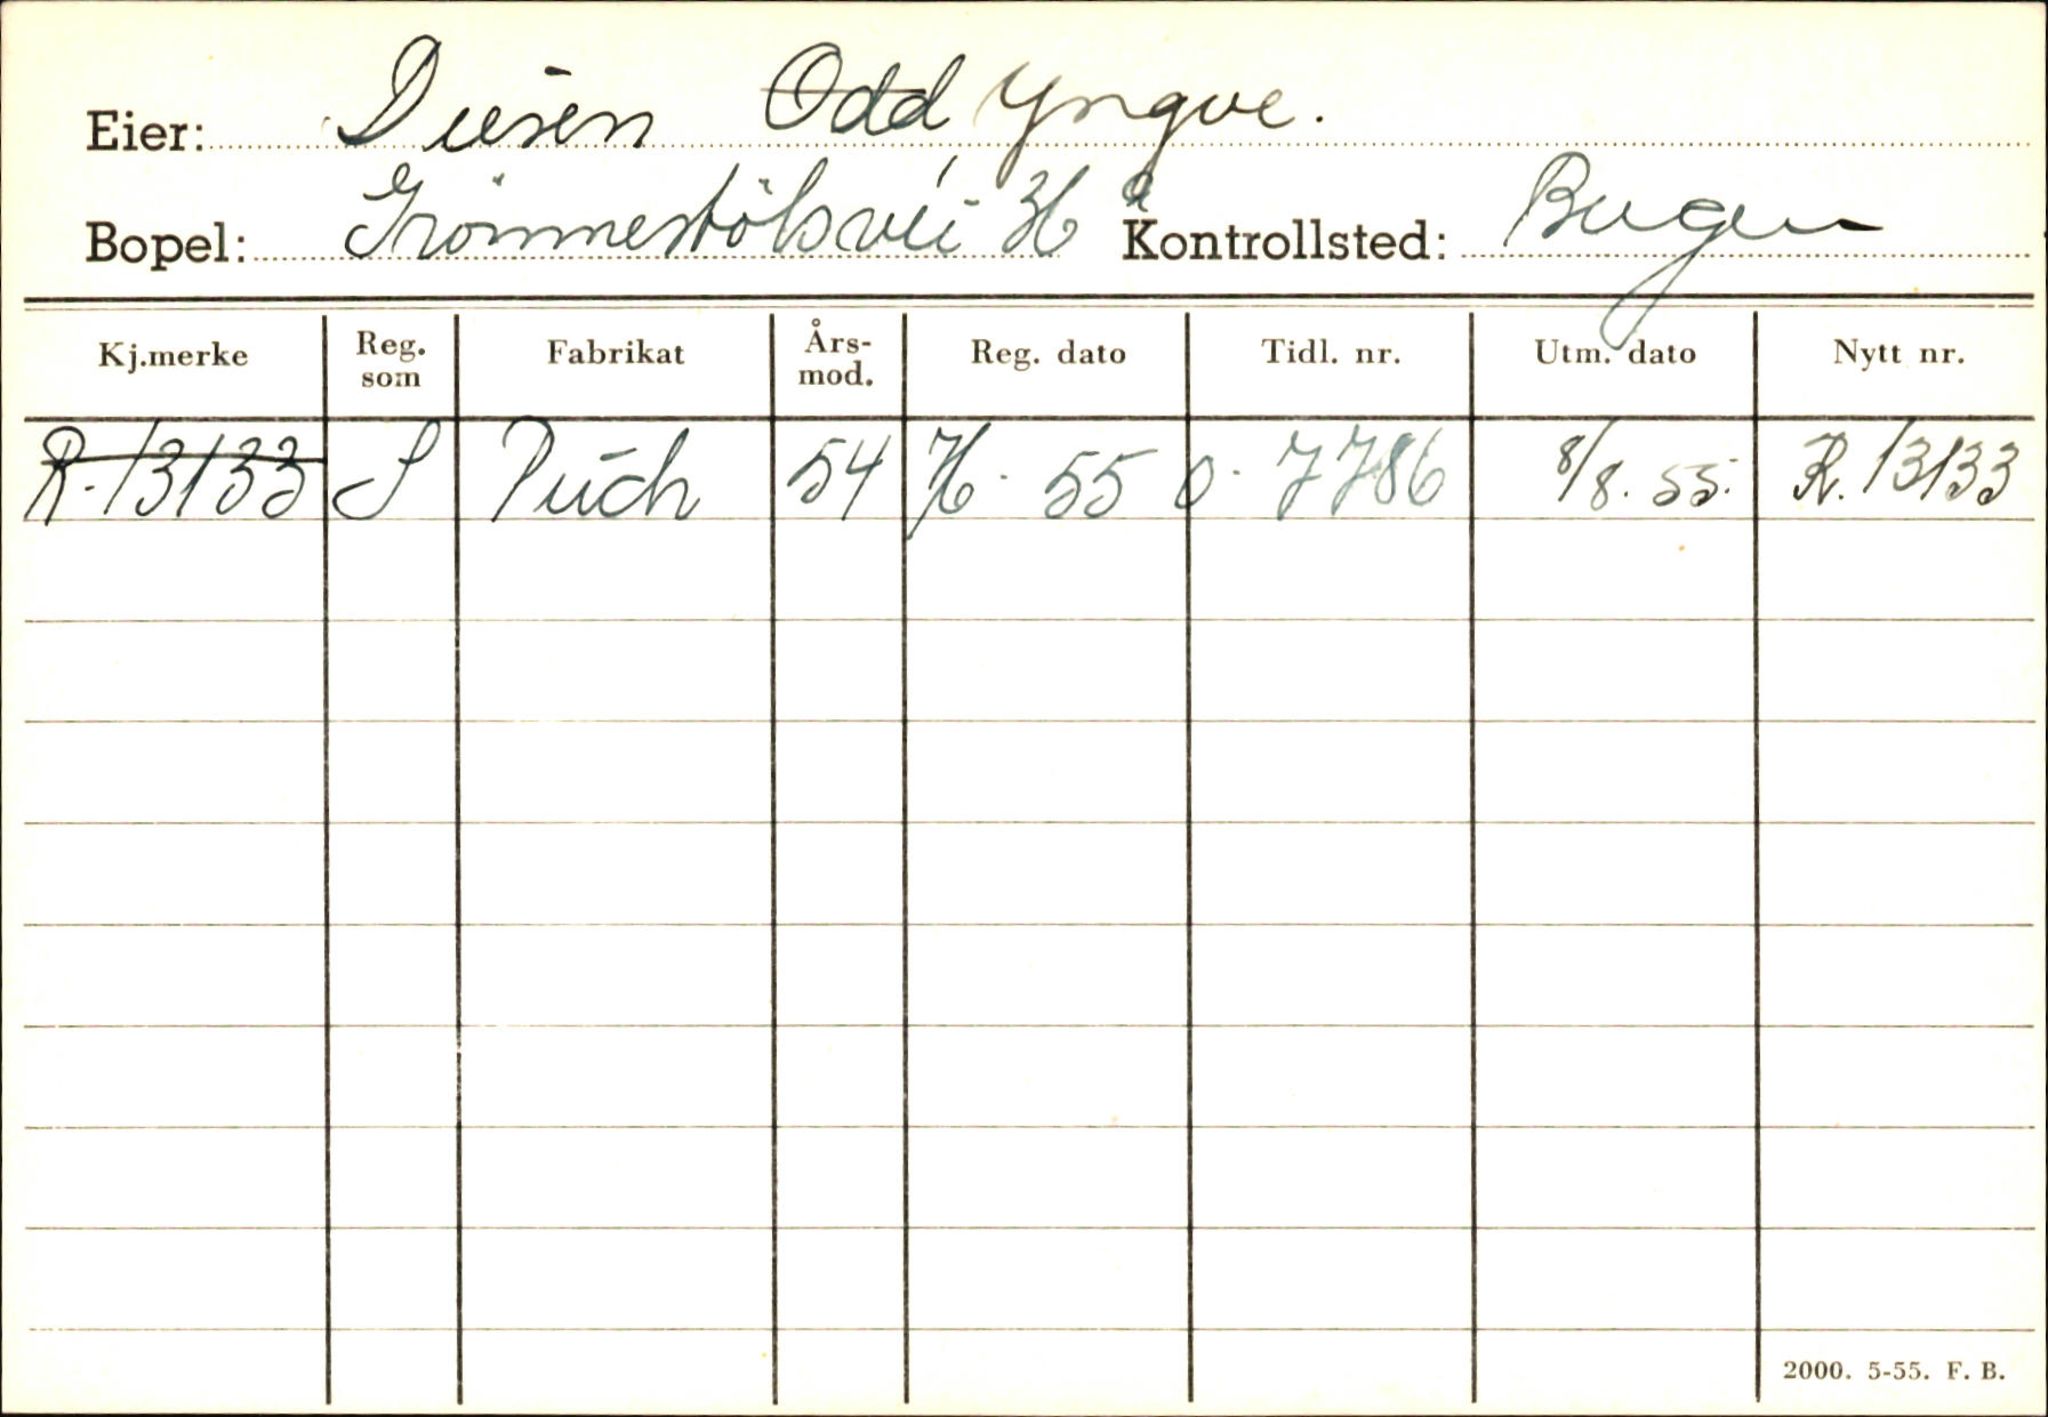 Eier: Diesen Odd Yngve.
Bopel: Grönnestölsvei 36 a Kontrollsted: Bergen
Kj.merke Reg. som Fabrikat Års-mod. Reg. dato Tidl. nr. Utm. dato Nytt nr.
R-13133 S Puch 54 55 0-7786 8/8.55. R.13133
2000. 5-55. F. B.